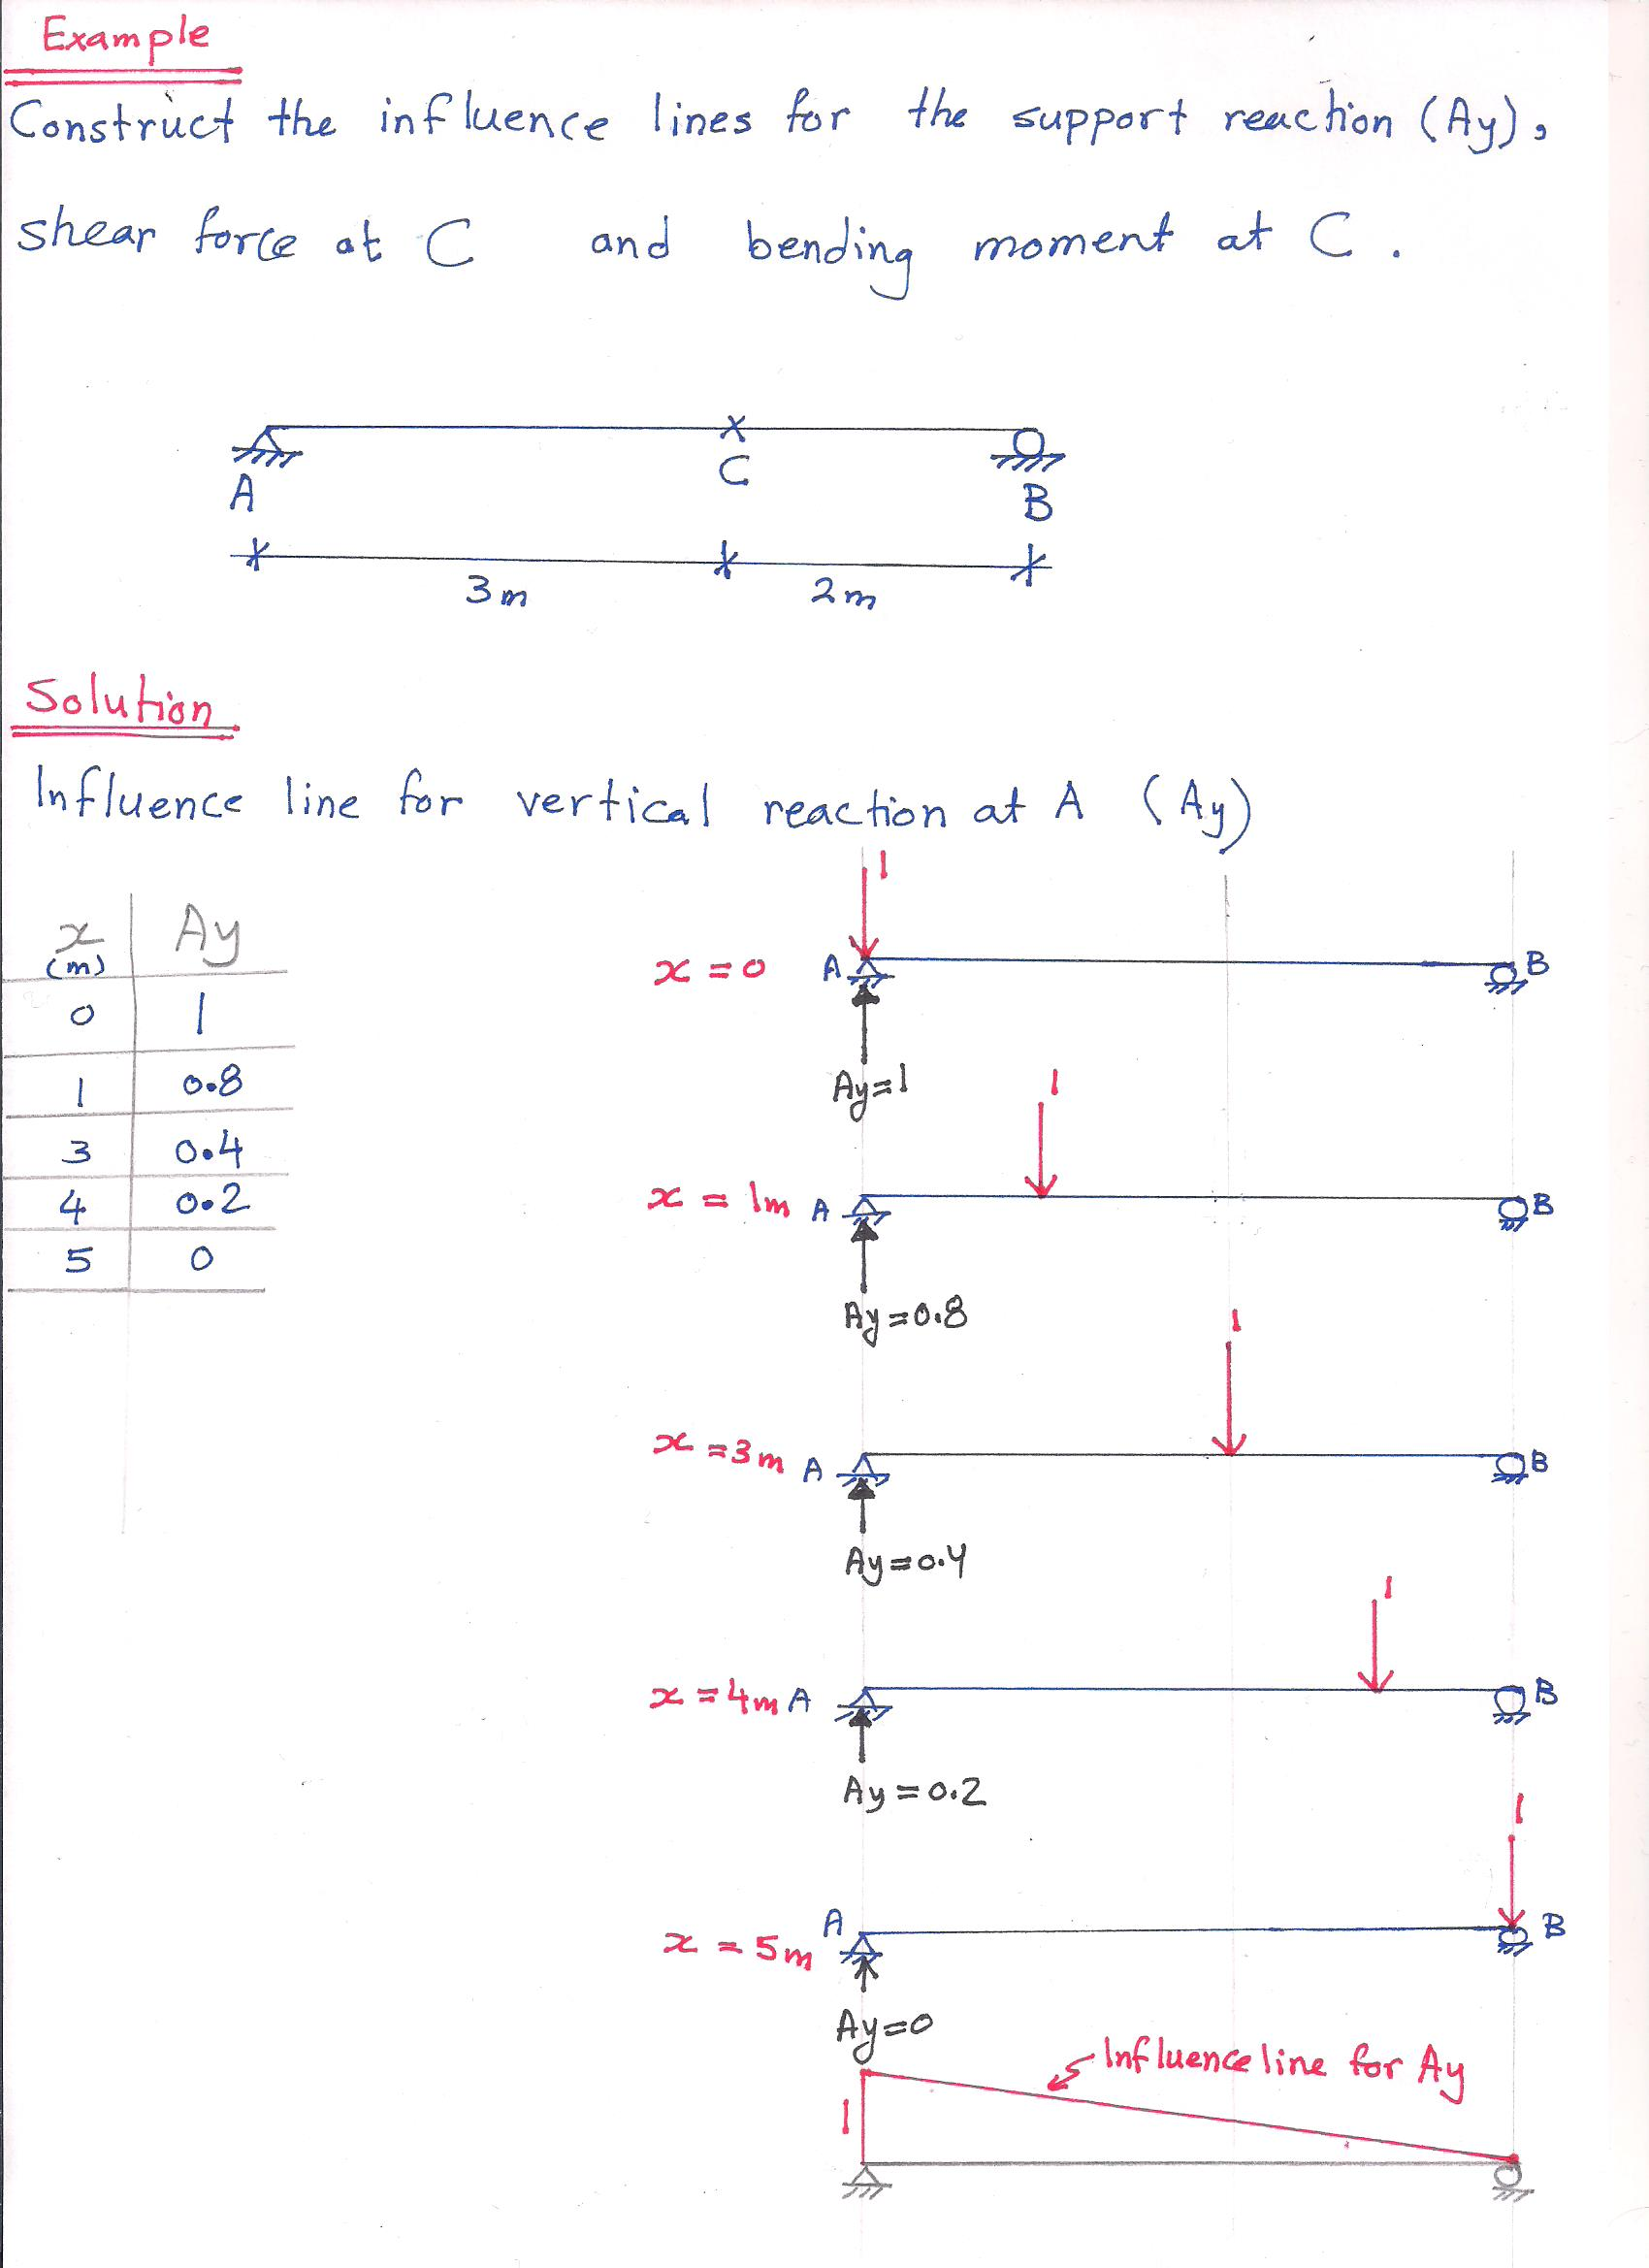 Example
Construct the influence lines for the support reaction (Ay),
shear force at C and bending moment at C.
A C B
3m 2m
Solution
Influence line for vertical reaction at A (Ay)
x (m) Ay
0 1
1 0.8
3 0.4
4 0.2
5 0
1
x = 0 A B
Ay=1
1
x = 1m A B
Ay=0.8
1
x =3m A B
Ay=0.4
1
x =4m A B
Ay=0.2
1
x = 5m A B
Ay=0
Influence line for Ay
1